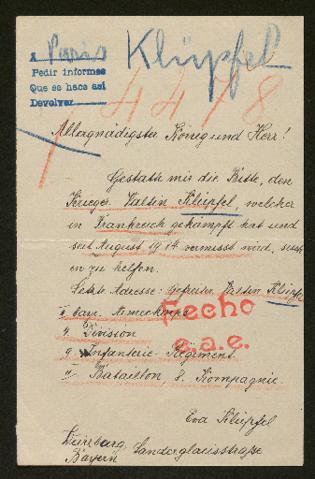 A Paris
Klüpfel
Pedir informes
Que se haga asi
Devolver
4478
Allergnädigster König und Herr!
Gestatte mir die Bitte, den
Krieger Valtin Klüpfel, welcher
in Frankreich gekämpft hat und
seit August 1914 vermisst wird, such
en zu helfen.
Letzte Adresse: Gefreiter Valtin Klüpfel
II. bayr. Armeekorps
4. Division
9. Infanterie-Regiment.
Bataillon, 8. Kompagnie.
Fecho
e.a.e.
Eva Klüpfel
Würzburg, Sanderglacisstraße
Bayern